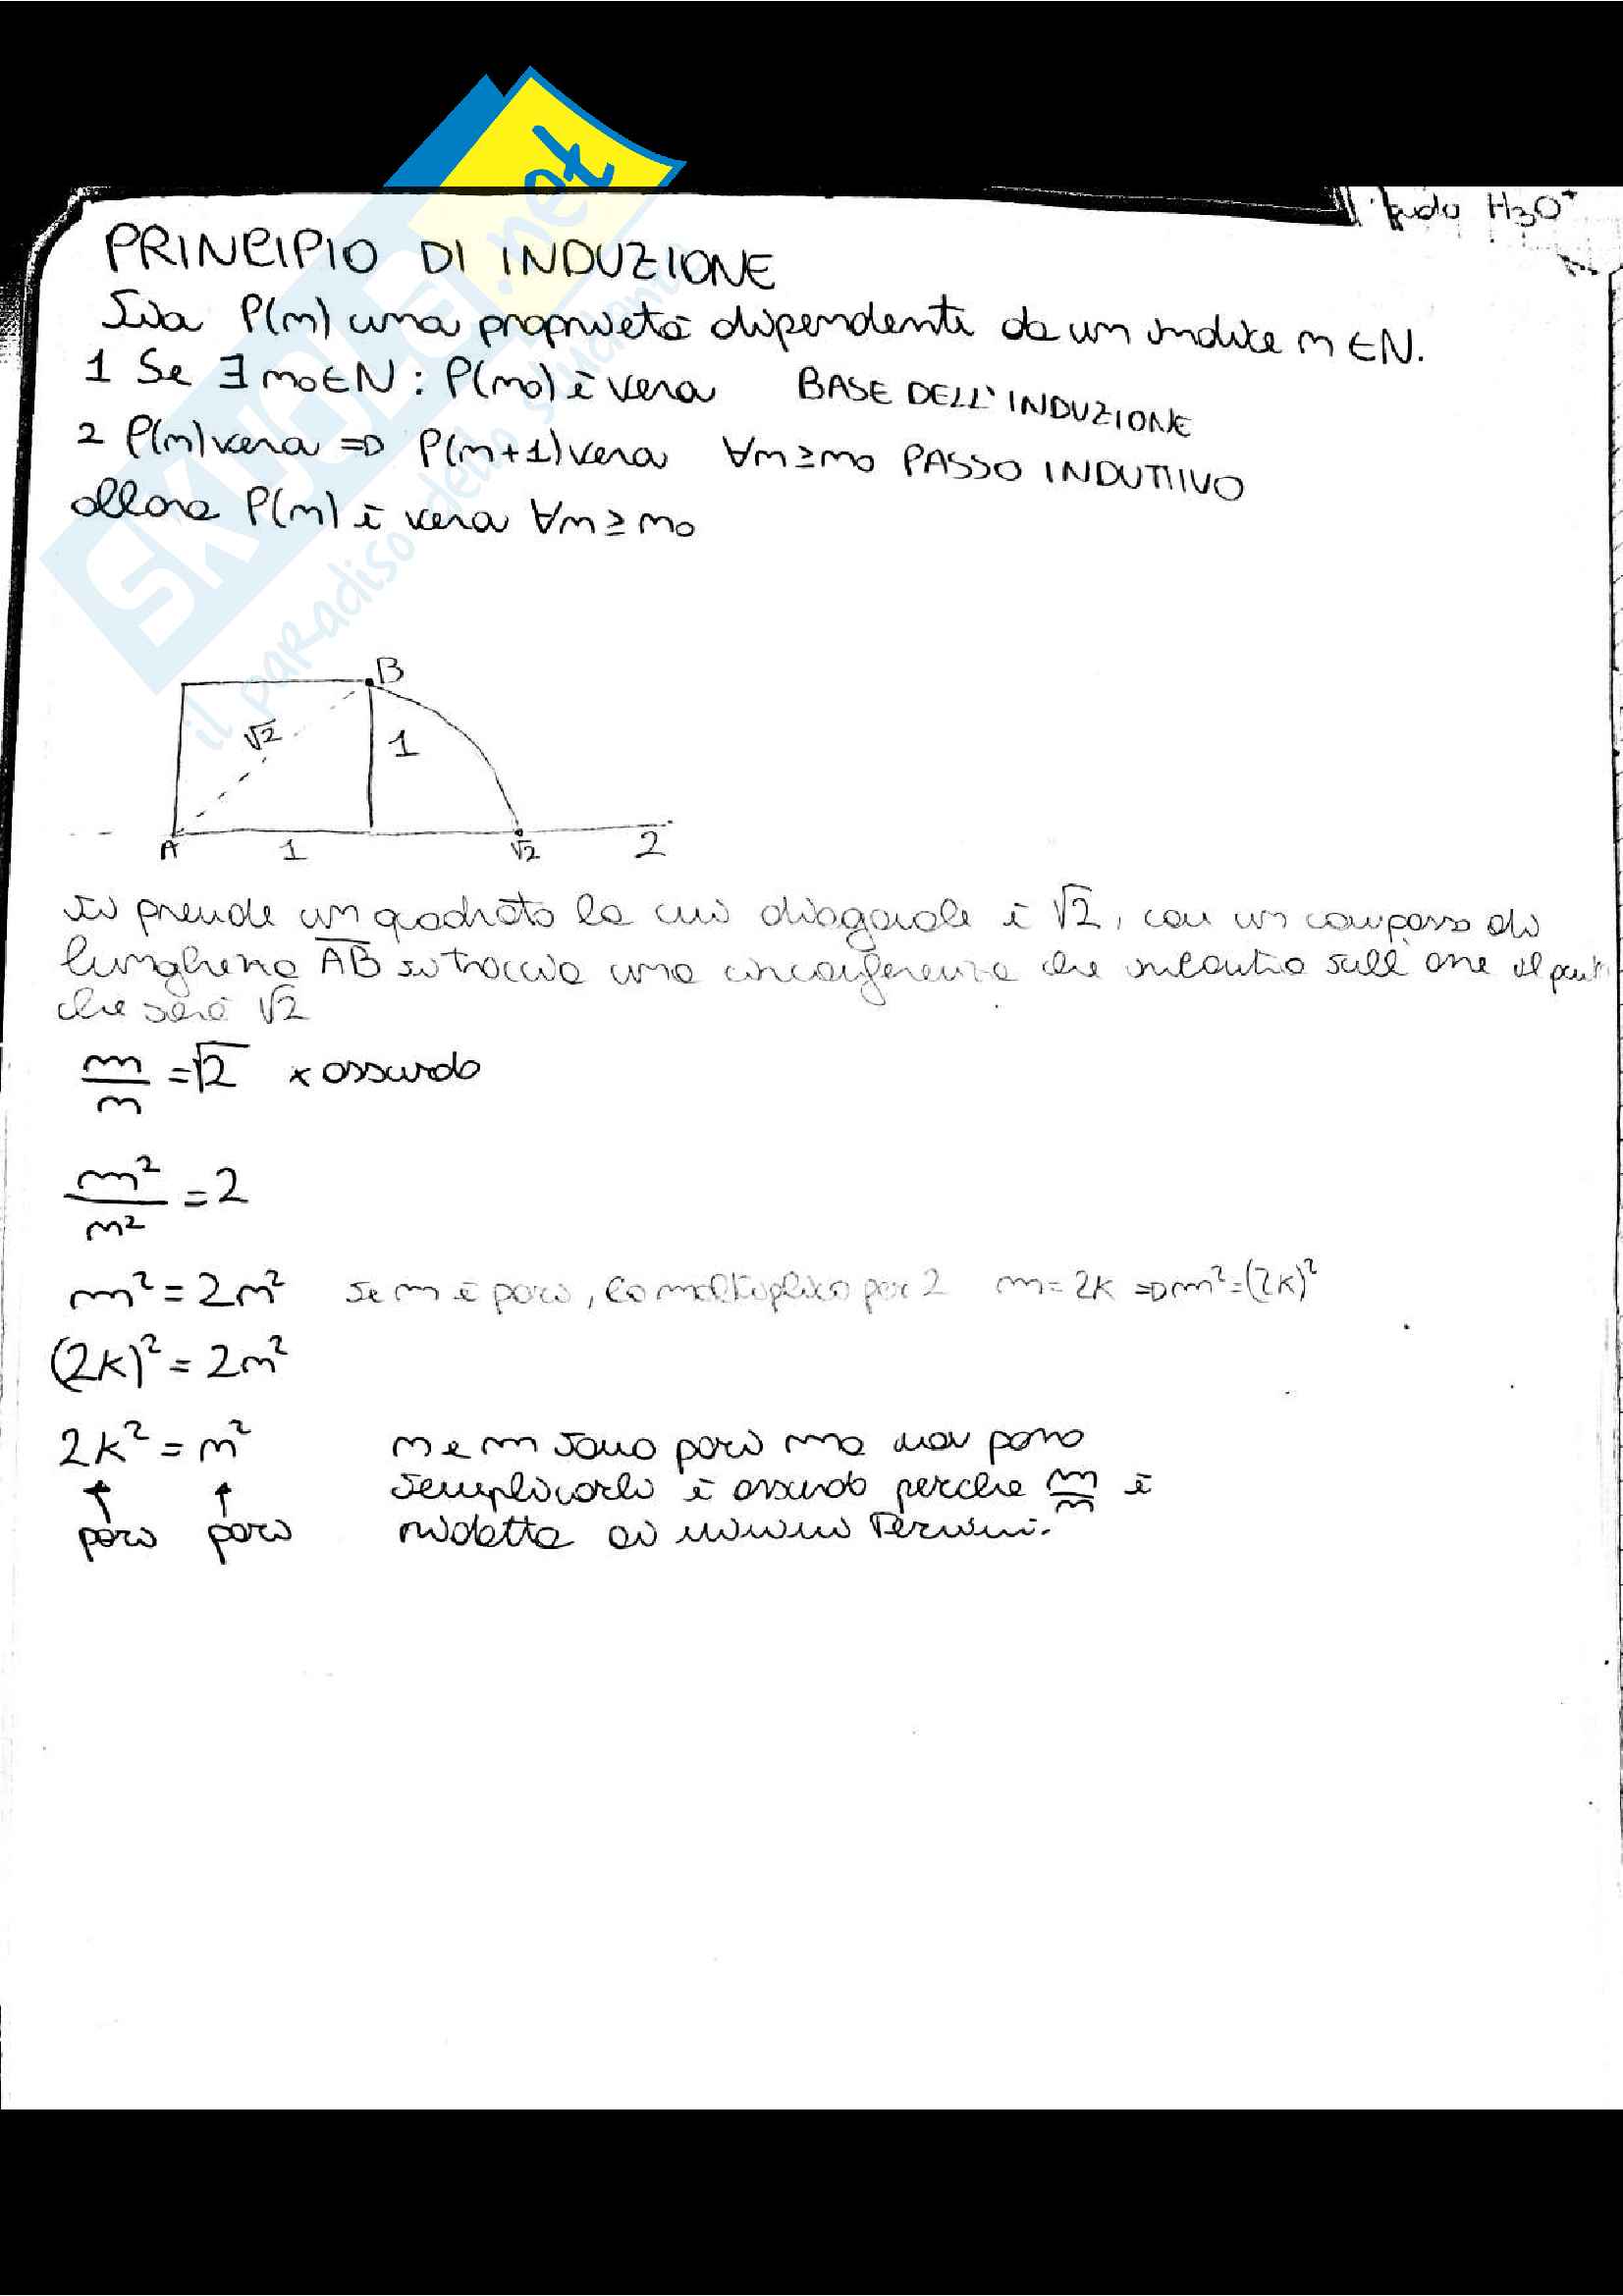 SKUOLA.net
il paradiso dello studente
PRINCIPIO DI INDUZIONE
Sia P(n) una proprietà dipendente da un indice n∈N.
1 Se ∃ n₀∈N : P(n₀) è vera BASE DELL'INDUZIONE
2 P(n) vera => P(n+1) vera ∀n≥n₀ PASSO INDUTTIVO
allora P(n) è vera ∀n≥n₀
B
√2
1
A 1 √2 2
Si prende un quadrato la cui diagonale è √2, con un compasso di
lunghezza AB si traccia una circonferenza che incontra sull'asse il punt
che sarà √2
m/n = √2 x assurdo
m²/n² = 2
m² = 2n² se m è pari, lo moltiplico per 2 m = 2k => m² = (2k)²
(2k)² = 2n²
2k² = n² n e m sono pari ma non posso
semplificarli è assurdo perche m/n è
pari pari ridotta ai minimi Termini.